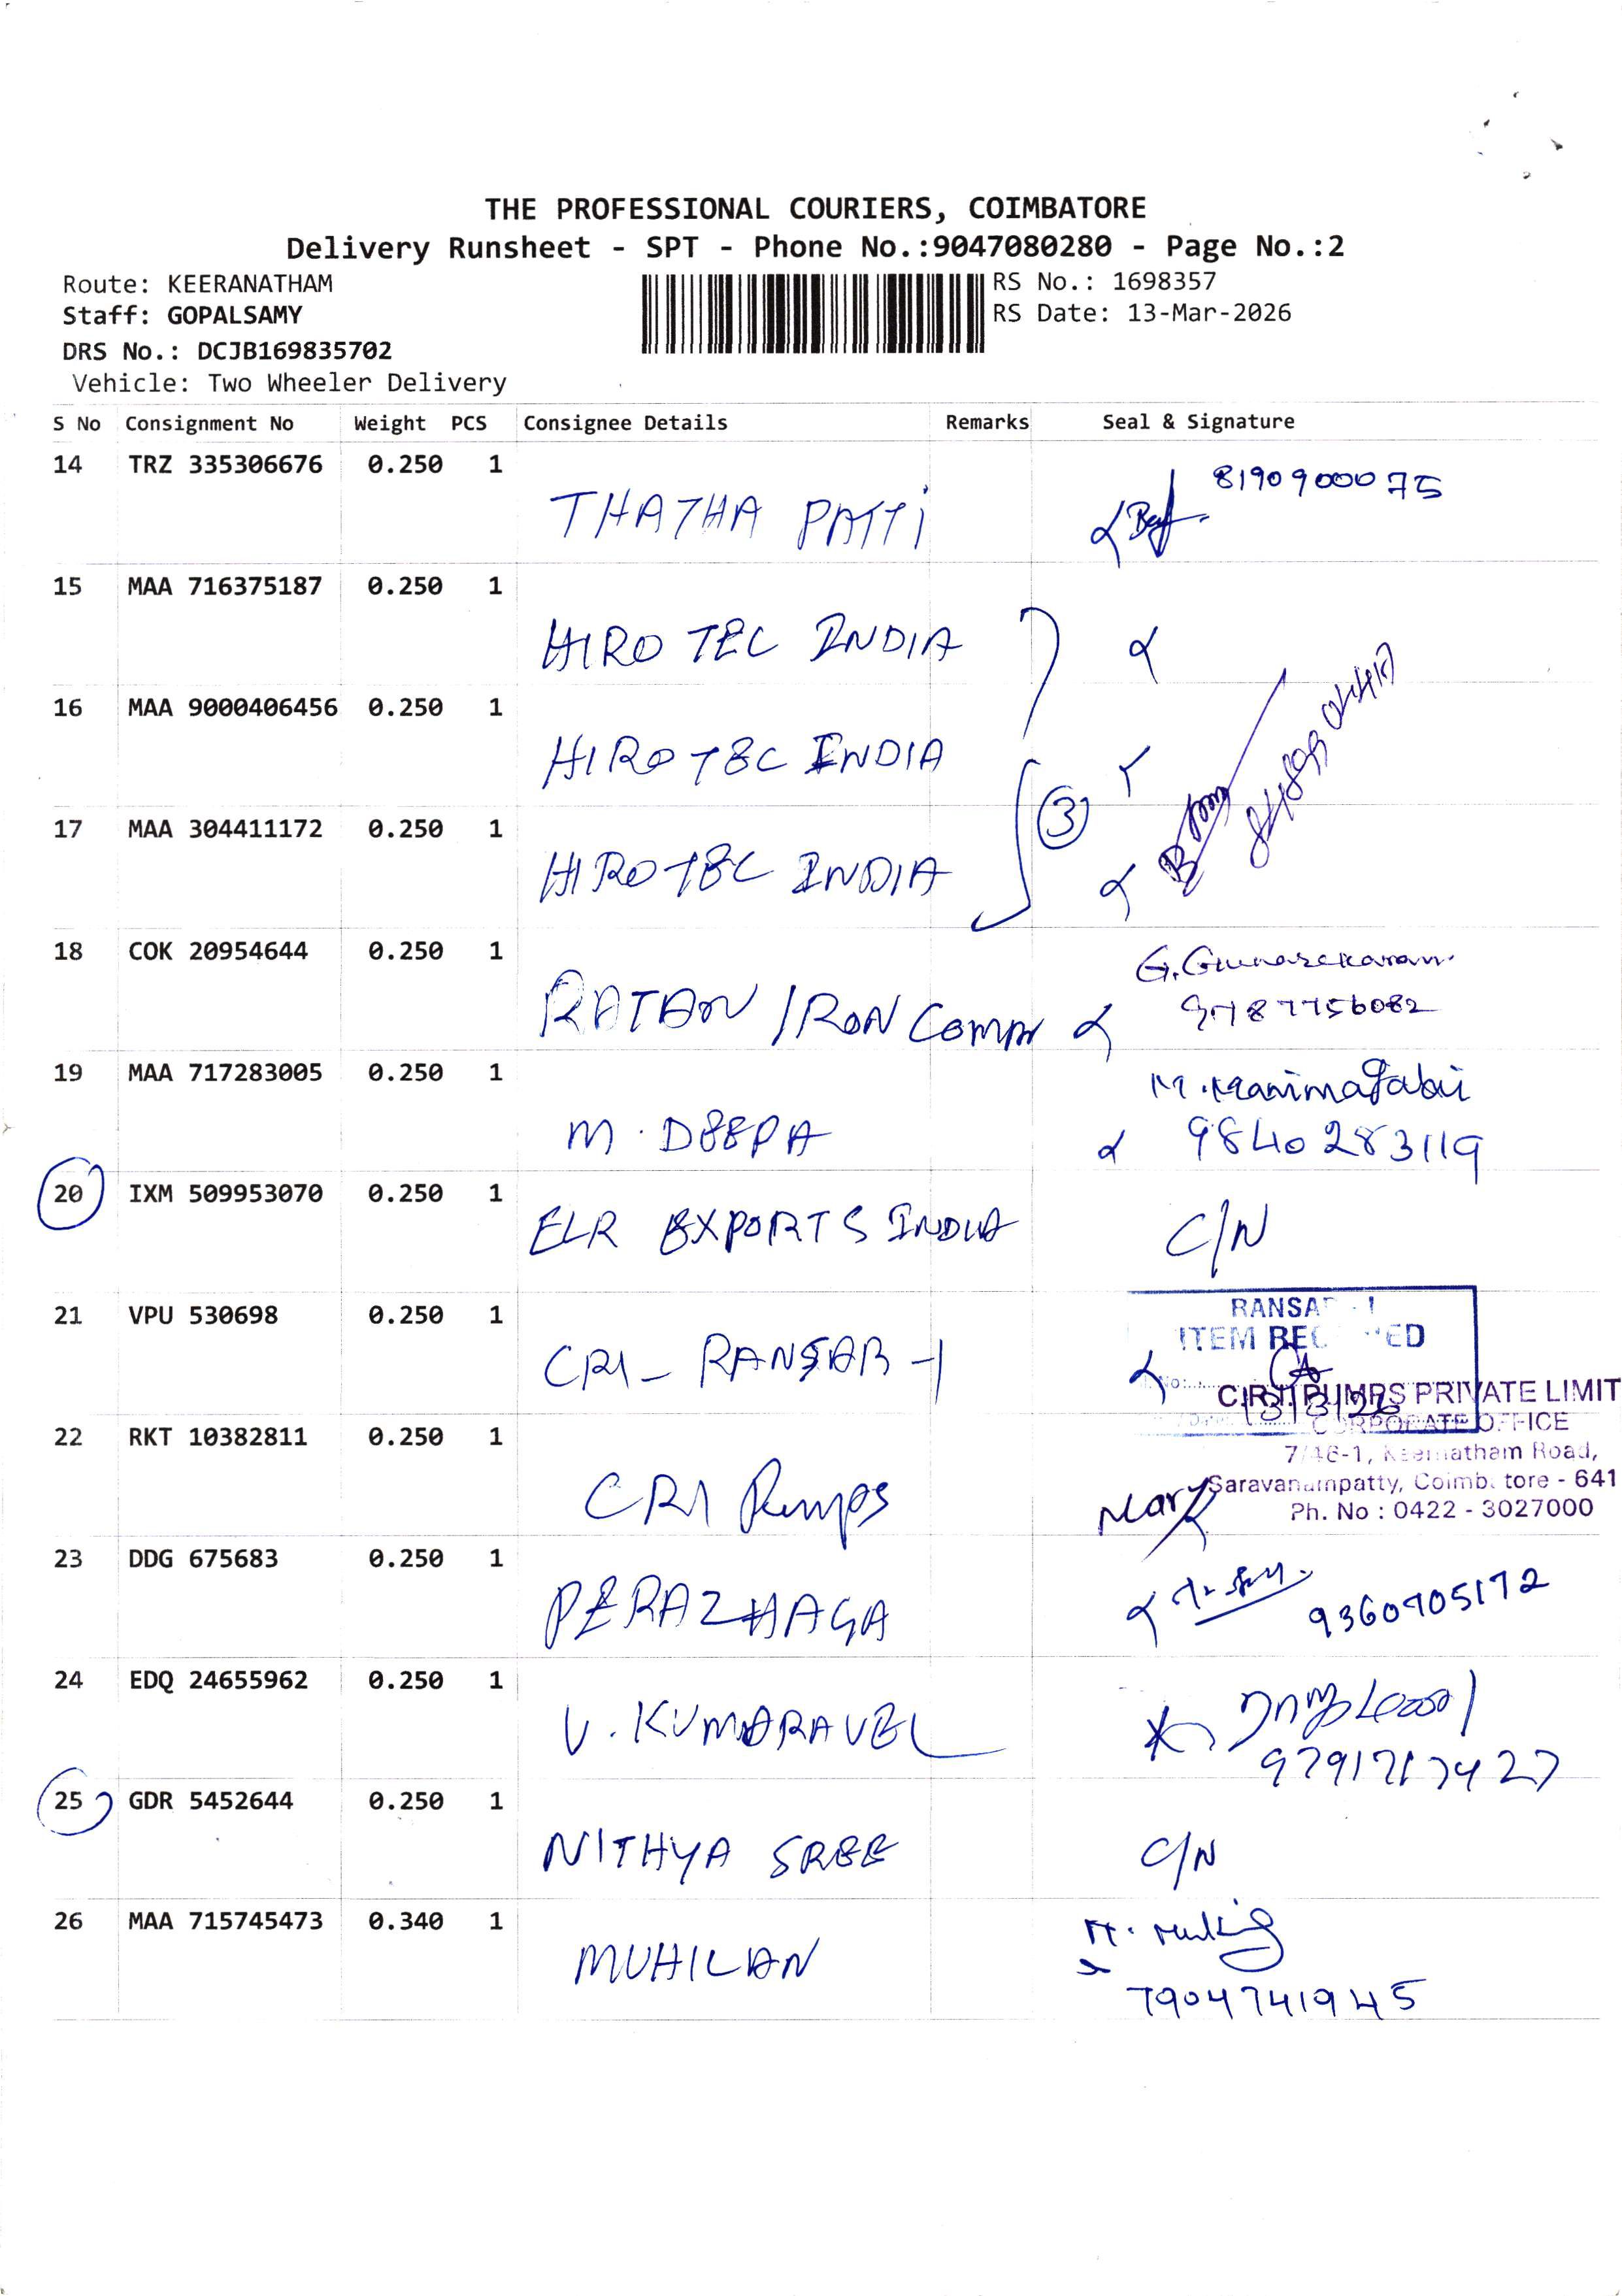 THE PROFESSIONAL COURIERS, COIMBATORE
Delivery Runsheet - SPT - Phone No.:9047080280 - Page No.:2
Route: KEERANATHAM
RS No.: 1698357
Staff: GOPALSAMY
RS Date: 13-Mar-2026
DRS No.: DCJB169835702
Vehicle: Two Wheeler Delivery
S No Consignment No Weight PCS Consignee Details Remarks Seal & Signature
14 TRZ 335306676 0.250 1
THATHA PATTi
8190900075
15 MAA 716375187 0.250 1
HIRO TEC INDIA
16 MAA 9000406456 0.250 1
HIRO TEC INDIA
17 MAA 304411172 0.250 1
HIRO TEC INDIA
3
18 COK 20954644 0.250 1
RATAN IRON Compn
G. Gunasekaran
9787756082
19 MAA 717283005 0.250 1
M. DEEPA
9840283119
20 IXM 509953070 0.250 1
ELR EXPORTS INDIA
C/N
21 VPU 530698 0.250 1
CRI - RANSAR - 1
ITEM
13/3/26
22 RKT 10382811 0.250 1
CRI Pumps
C.R.I. PUMPS PRIVATE LIMIT
CORPORATE OFFICE
7/46-1, Keernatham Road,
Saravanampatty, Coimbatore - 641
Ph. No : 0422 - 3027000
Mary
23 DDG 675683 0.250 1
PERAZHAGA
9360905172
24 EDQ 24655962 0.250 1
V. KUMARAVEL
25 GDR 5452644 0.250 1
NITHYA SREE
C/N
26 MAA 715745473 0.340 1
MUHILAN
7904741945